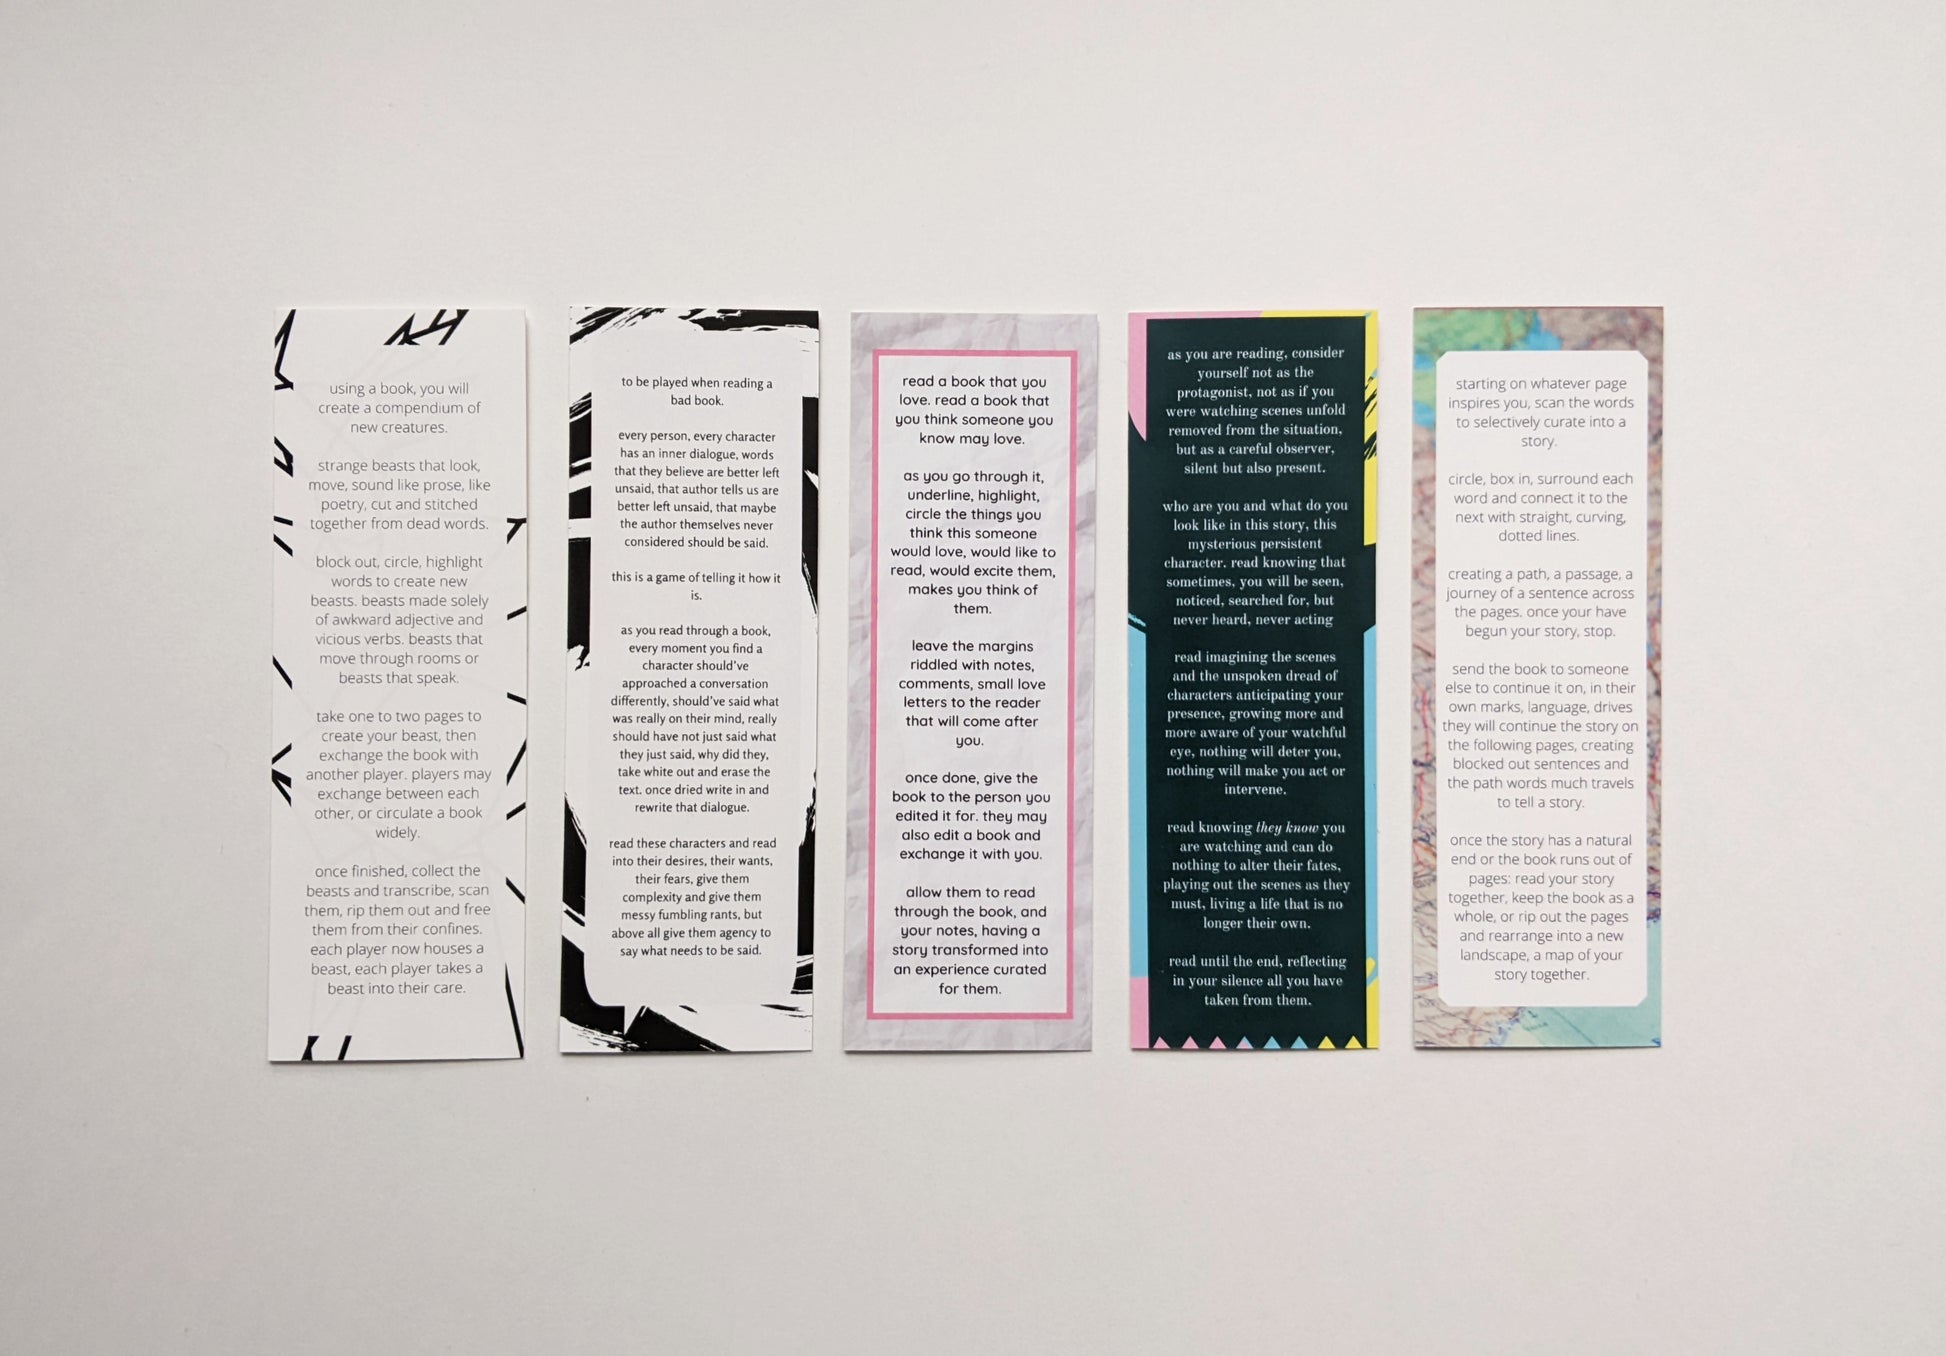 using a book, you will
create a compendium of
new creatures.
strange beasts that look,
move, sound like prose, like
poetry, cut and stitched
together from dead words.
block out, circle, highlight
words to create new
beasts. beasts made solely
of awkward adjective and
vicious verbs. beasts that
move through rooms or
beasts that speak.
take one to two pages to
create your beast, then
exchange the book with
another player. players may
exchange between each
other, or circulate a book
widely.
once finished, collect the
beasts and transcribe, scan
them, rip them out and free
them from their confines.
each player now houses a
beast, each player takes a
beast into their care.
to be played when reading a
bad book.
every person, every character
has an inner dialogue, words
that they believe are better left
unsaid, that author tells us are
better left unsaid, that maybe
the author themselves never
considered should be said.
this is a game of telling it how it
is.
as you read through a book,
every moment you find a
character should've
approached a conversation
differently, should've said what
was really on their mind, really
should have not just said what
they just said, why did they,
take white out and erase the
text. once dried write in and
rewrite that dialogue.
read these characters and read
into their desires, their wants,
their fears, give them
complexity and give them
messy fumbling rants, but
above all give them agency to
say what needs to be said.
read a book that you
love. read a book that
you think someone you
know may love.
as you go through it,
underline, highlight,
circle the things you
think this someone
would love, would like to
read, would excite them,
makes you think of
them.
leave the margins
riddled with notes,
comments, small love
letters to the reader
that will come after
you.
once done, give the
book to the person you
edited it for. they may
also edit a book and
exchange it with you.
allow them to read
through the book, and
your notes, having a
story transformed into
an experience curated
for them.
as you are reading, consider
yourself not as the
protagonist, not as if you
were watching scenes unfold
removed from the situation,
but as a careful observer,
silent but also present.
who are you and what do you
look like in this story, this
mysterious persistent
character. read knowing that
sometimes, you will be seen,
noticed, searched for, but
never heard, never acting
read imagining the scenes
and the unspoken dread of
characters anticipating your
presence, growing more and
more aware of your watchful
eye, nothing will deter you,
nothing will make you act or
intervene.
read knowing they know you
are watching and can do
nothing to alter their fates,
playing out the scenes as they
must, living a life that is no
longer their own.
read until the end, reflecting
in your silence all you have
taken from them.
starting on whatever page
inspires you, scan the words
to selectively curate into a
story.
circle, box in, surround each
word and connect it to the
next with straight, curving,
dotted lines.
creating a path, a passage, a
journey of a sentence across
the pages. once your have
begun your story, stop.
send the book to someone
else to continue it on, in their
own marks, language, drives
they will continue the story on
the following pages, creating
blocked out sentences and
the path words much travels
to tell a story.
once the story has a natural
end or the book runs out of
pages: read your story
together, keep the book as a
whole, or rip out the pages
and rearrange into a new
landscape, a map of your
story together.